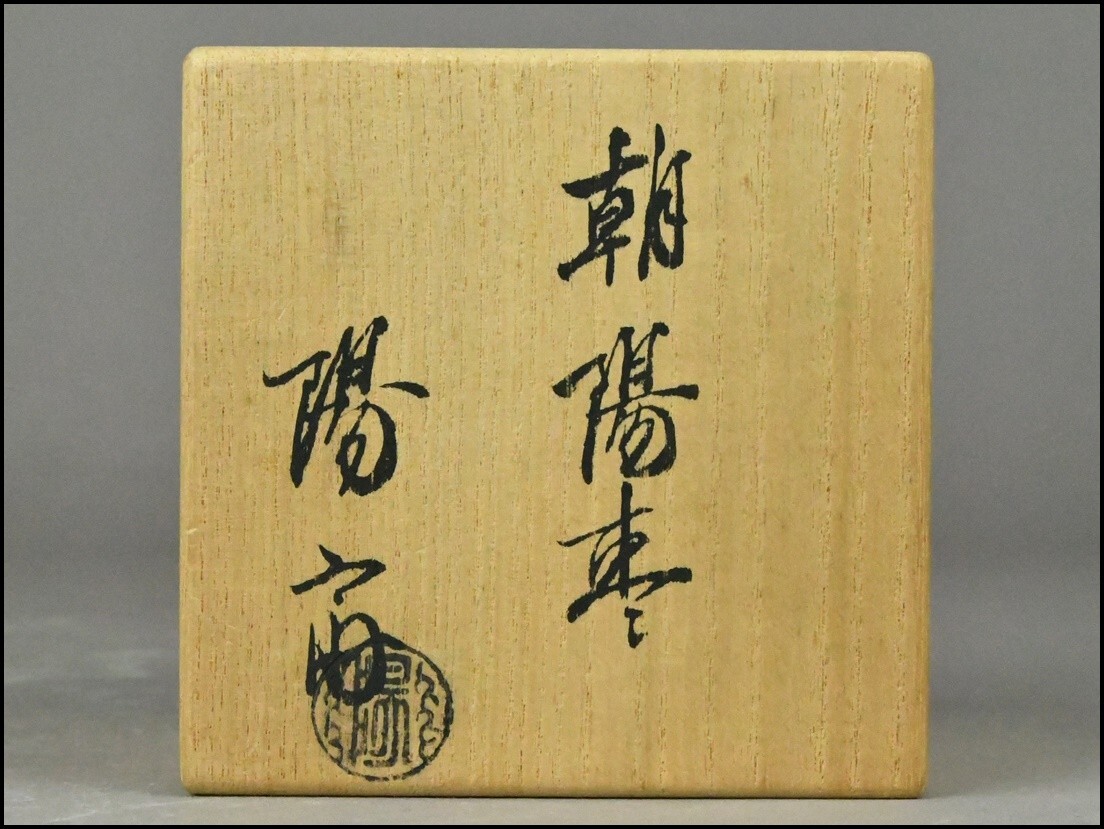 朝陽棗
陽齋